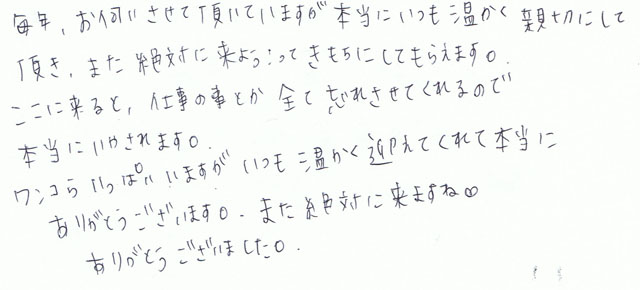 毎年、お伺いさせて頂いていますが本当にいつも温かく親切にして
頂き、また絶対に来ようってきもちにしてもらえます。
ここに来ると、仕事の事とか全て忘れさせてくれるので
本当にいやされます。
ワンコらいっぱいいますがいつも温かく迎えてくれて本当に
ありがとうございます。また絶対に来ますね♡
ありがとうございました。